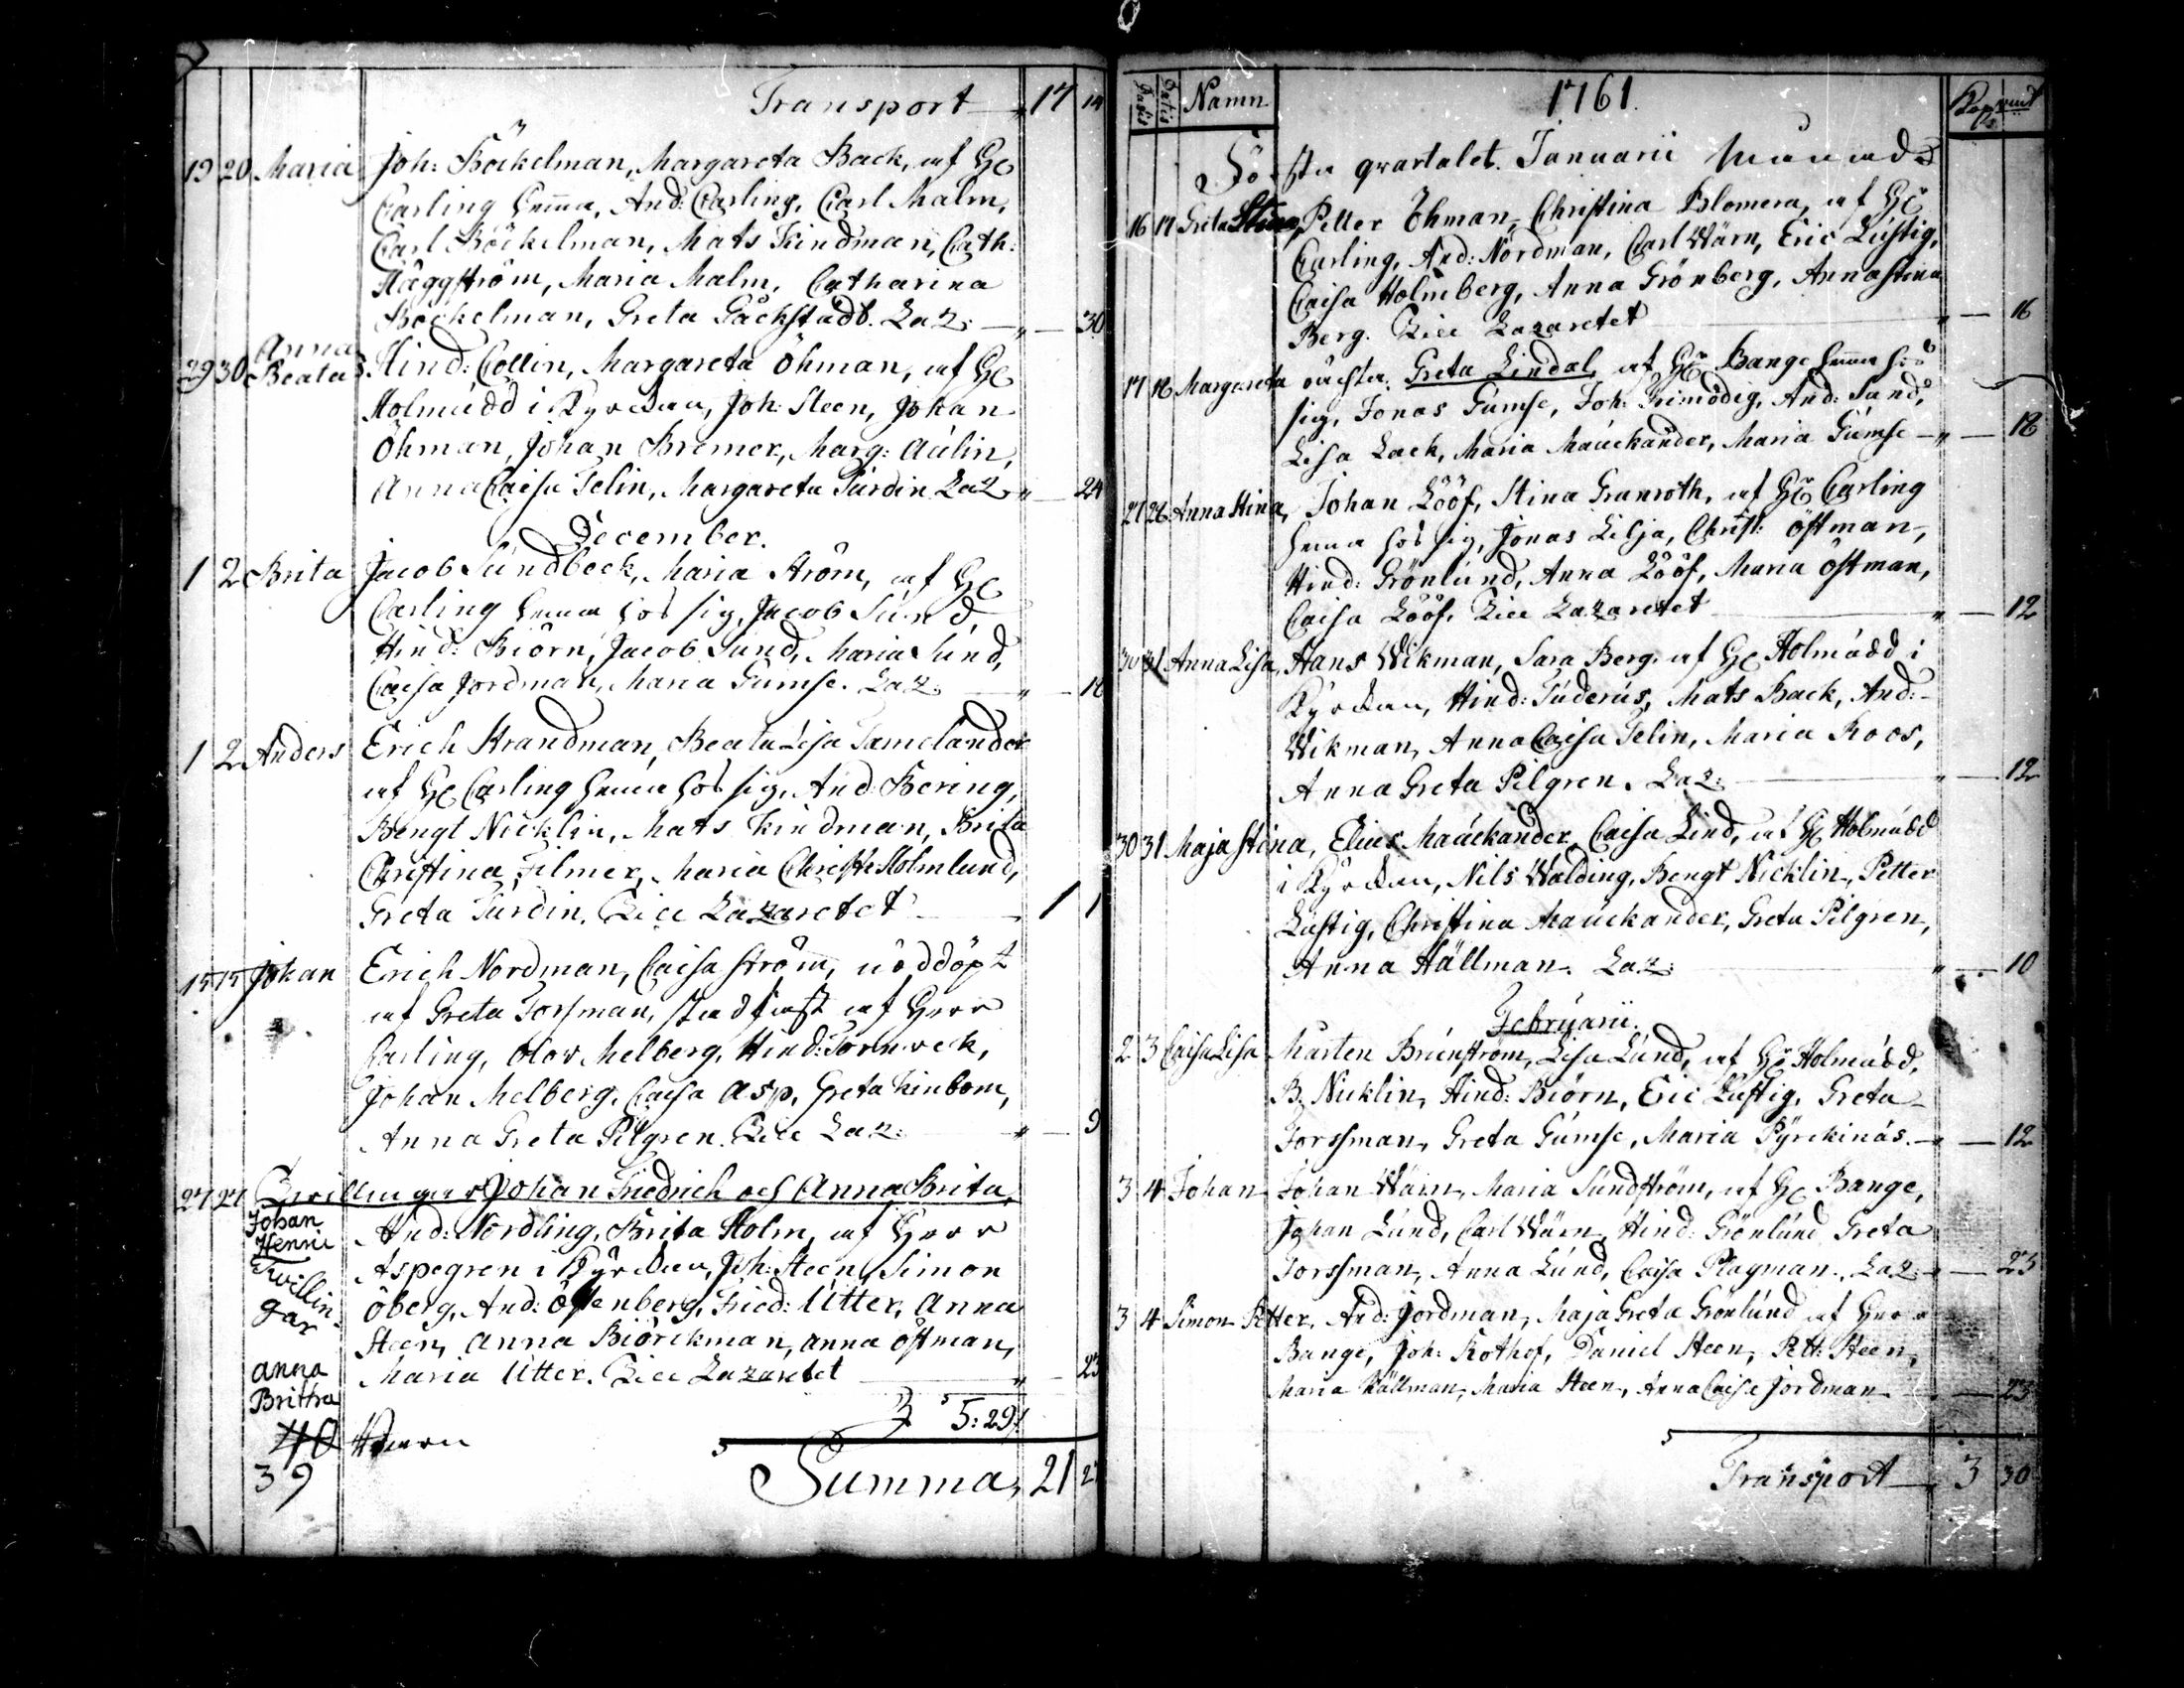 Transport 17 14
19 20 Maria Joh: Böckelman, Margareta Back, af Hr
Carling hema, And: Carling, Carl Malm,
Carl Böckelman, Mats Kindman, Cath:
Häggström, Maria Malm, Catharina
Böckelman, Greta Gäckstädt. Laz: — " — 30
29 30 Anna Beata Hind: Collin, Margareta Öhman, af Hr
Holmudd i Kyrckan, Joh: Steen, Johan
Öhman, Johan Bremer, Marg: Aulin,
Anna Caisa Telin, Margareta Turdin Laz " — 24
December.
1 2 Brita Jacob Sundbeck, Maria Ström, af Hr
Carling hema hos sig, Jacob Sund,
Hind: Biörn, Jacob Sund, Maria Sund,
Caisa Jordman, Maria Gumse. Laz: — " — 18
1 2 Anders Erich Strandman, Beata Lisa Tamelander
af Hr Carling hema hos sig, And: Bering,
Bengt Nicklin, Mats Kindman, Brita
Christina Filmer, Maria Christ: Holmlund,
Greta Turdin, Till Lazaretet — 1 1
15 15 Johan Erich Nordman, Caisa Ström, nöddöpt
af Greta Forsman, stadfäst af Herr
Carling, Olov Melberg, Hind: Törnroek,
Johan Melberg, Caisa Asp, Greta Kinbom,
Anna Greta Pilgren. Till Laz: — " — 9
27 27 Tvillingar Johan Friedrich och Anna Brita,
Johan Henric And: Nordling, Brita Holm, af Herr
Tvillin- Aspegren i Kyrckan, Joh: Steen, Simon
gar Öberg, And: Östenberg, Fried: Utter, Anna
Steen, Anna Biörckman, Anna Östman,
Anna Brittra Maria Utter. Till Lazaretet — " — 23
5: 29
40
39
Summa, 21 27
Natis Datis Namn 1761.
Första qvartalet. Januarii Månad
16 17 Greta Stina, Petter Öhman, Christina Blomera, af Hr
Carling, And: Nordman, Carl Wärn, Eric Lustig,
Caisa Holmberg, Anna Grönberg, Annastina
Berg. Till Lazaretet — " — 16
17 18 Margareta oächta. Greta Lindal, af Hr Bange hema hos
sig, Jonas Gumse, Joh: Frimodig, And: Sund,
Lisa Lack, Maria Mauckander, Maria Gumse — " — 18
27 28 Anna Stina, Johan Lööf, Stina Granroth, af Hr Carling
hema hos sig, Jonas Lilja, Christ: Östman,
Hind: Grönlund, Anna Lööf, Maria Östman,
Caisa Lööf. Till Lazaretet — " — 12
30 31 Anna Lisa, Hans Wikman, Sara Berg. af Hr Holmudd i
Kyrckan, Hind: Tuderus, Mats Back, And:
Wikman, Anna Caisa Telin, Maria Roos,
Anna Greta Pilgren. Laz: — " — 12
30 31 Maja Stina, Elias Mauckander, Caisa Lind, af Hr Holmudd
i Kyrckan, Nils Walding, Bengt Nicklin, Petter
Lustig, Christina Mauckander, Greta Pilgren,
Anna Hällman. Laz: — " — 10
Februarii.
2 3 Caisa Lisa Mårten Brunström, Lisa Lund, af Hr Holmudd,
B. Nicklin, Hind: Biörn, Eric Lustig, Greta
Forssman, Greta Gumse, Maria Pyrckinäs. — " — 12
3 4 Johan Johan Wärn, Maria Sundström, af Hr Bange,
Johan Lund, Carl Wärn, Hind: Grönlund Greta
Forssman, Anna Lund, Caisa Plagman. Laz: " — 23
3 4 Simon Petter, And: Jordman, Maja Greta Grönlund af Herr
Bange, Joh: Rothof, Daniel Steen, Pett: Steen,
Maria Källman, Maria Steen, Anna Caisa Jordman — 23
Transport — 3 30